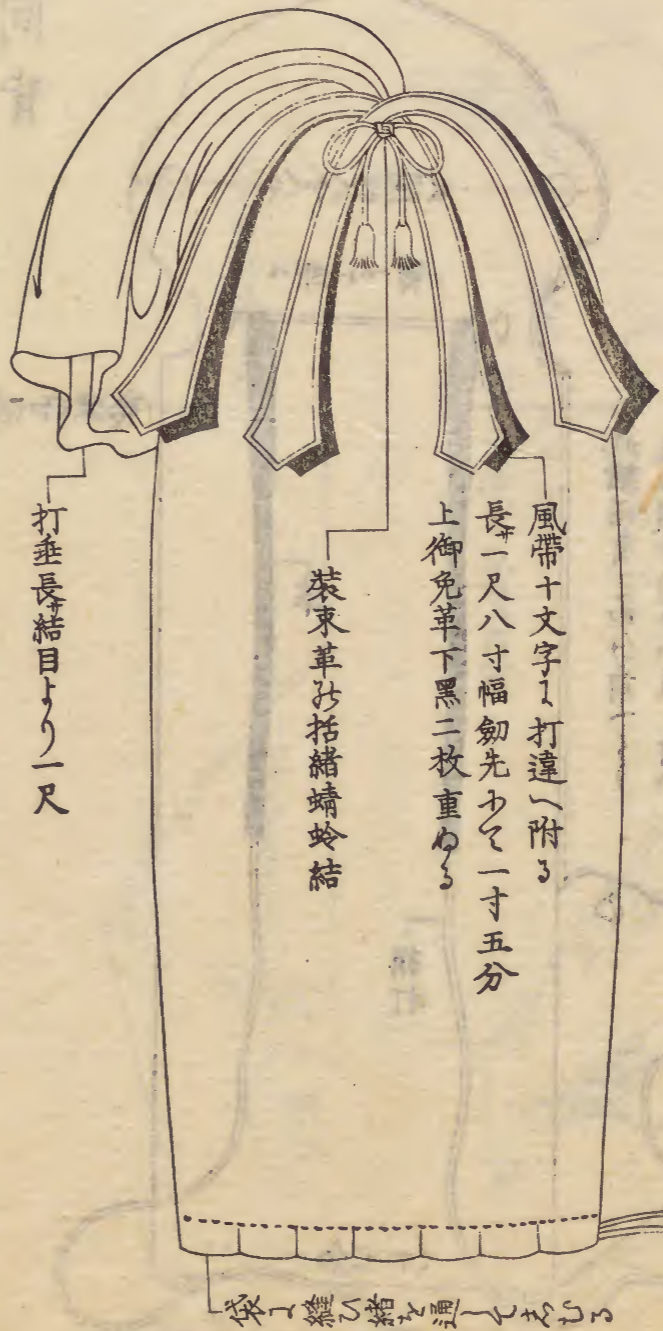 風帶十文字に打違へ附る
長サ一尺八寸幅劔先にて一寸五分
上御免革下黑二枚重ぬる
裝束革の括緒蜻蛉結
打垂長サ結目より一尺
袋に縫ひ緒を通してしむる